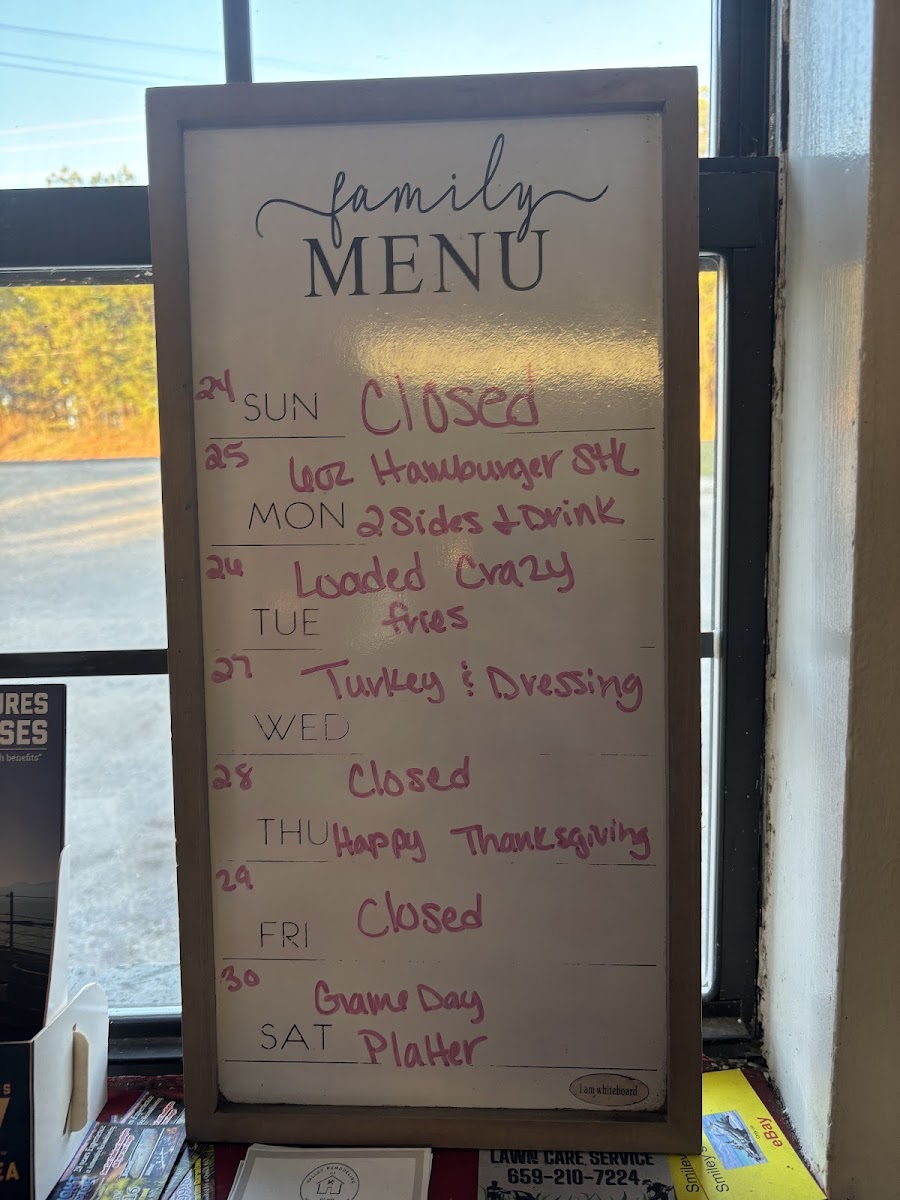 family
MENU
24 SUN Closed
25 6oz Hamburger Stk
MON 2 Sides & Drink
26 Loaded Crazy
TUE fries
27 Turkey & Dressing
WED
28 Closed
THU Happy Thanksgiving
29
FRI Closed
30 Game Day
SAT Platter
I am whiteboard
URES
SES
h benefits"
LAWN CARE SERVICE
659-210-7224
Smiley's
Smiley's
eBay